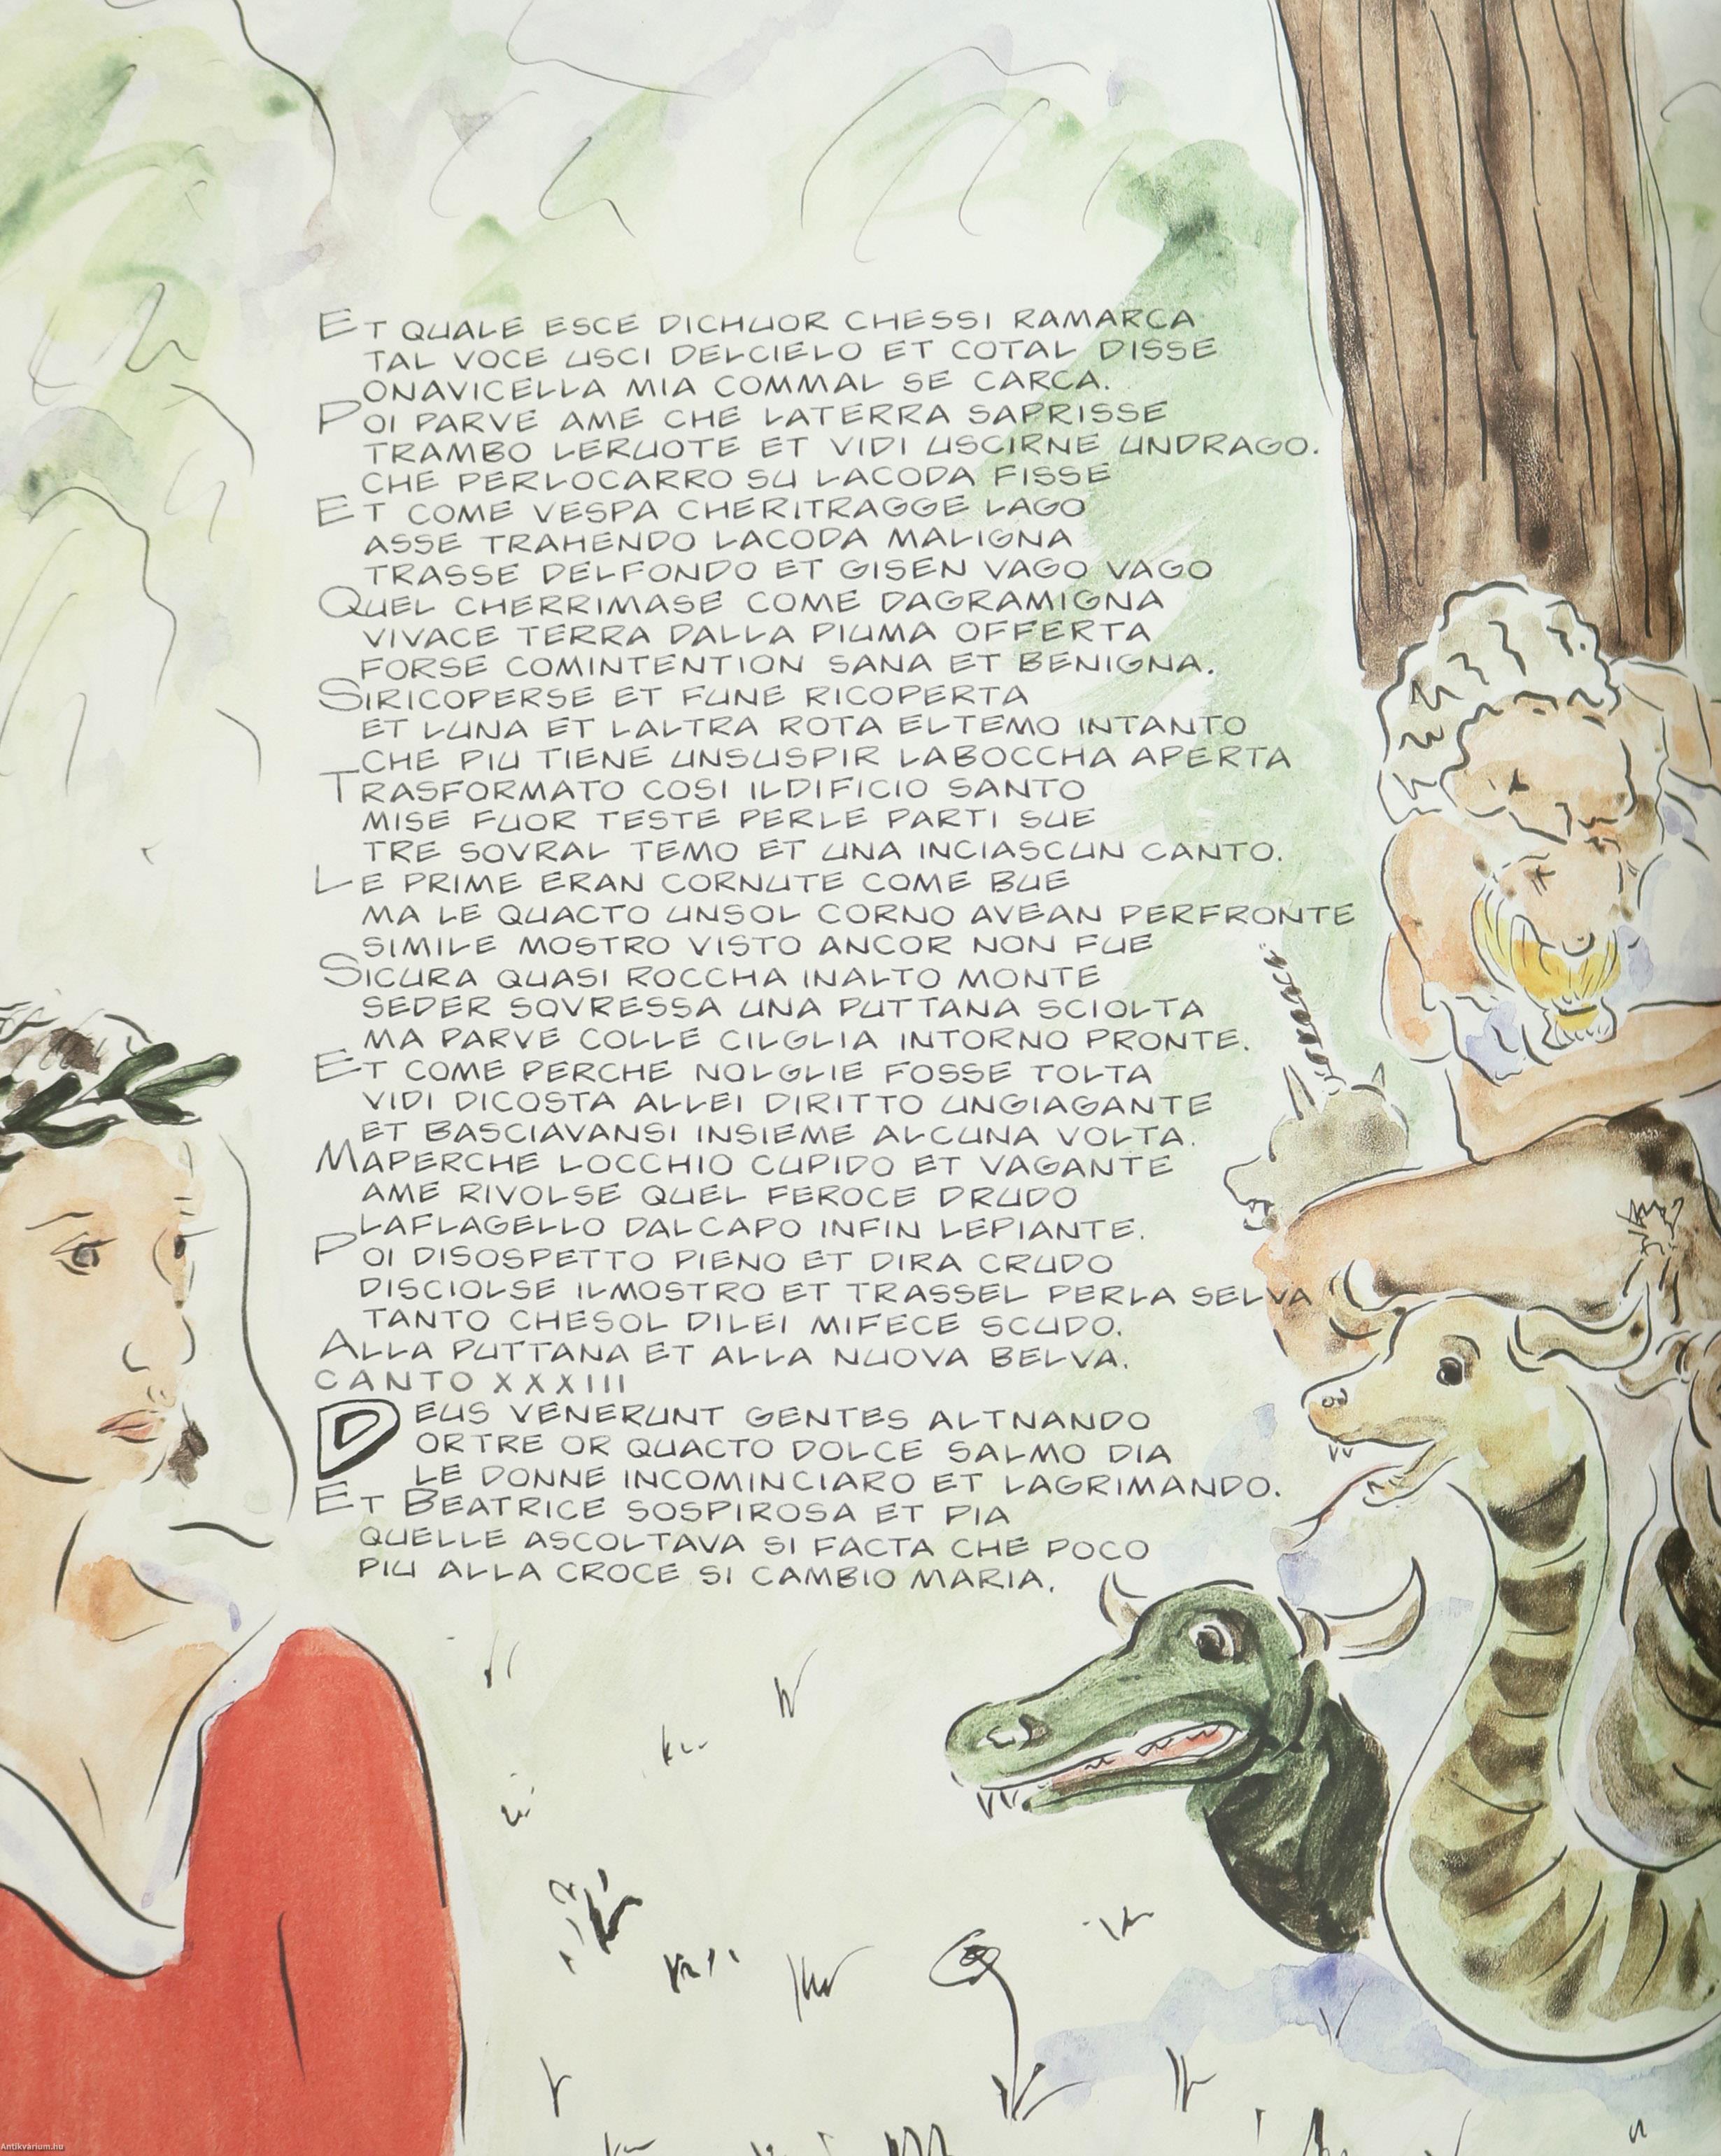 ET QUALE ESCE DICHUOR CHESSI RAMARCA
TAL VOCE USCI DELCIELO ET COTAL DISSE
ONAVICELLA MIA COMMAL SE CARCA.
POI PARVE AME CHE LATERRA SAPRISSE
TRAMBO LERUOTE ET VIDI USCIRNE UNDRAGO.
CHE PERLOCARRO SU LACODA FISSE
ET COME VESPA CHERITRAGGE LAGO
ASSE TRAHENDO LACODA MALIGNA
TRASSE DELFONDO ET GISEN VAGO VAGO
QUEL CHERRIMASE COME DAGRAMIGNA
VIVACE TERRA DALLA PIUMA OFFERTA
FORSE COMINTENTION SANA ET BENIGNA.
SIRICOPERSE ET FUNE RICOPERTA
ET LUNA ET LALTRA ROTA ELTEMO INTANTO
CHE PIU TIENE UNSUSPIR LABOCCHA APERTA
TRASFORMATO COSI ILDIFICIO SANTO
MISE FUOR TESTE PERLE PARTI SUE
TRE SOVRAL TEMO ET UNA INCIASCUN CANTO.
LE PRIME ERAN CORNUTE COME BUE
MA LE QUACTO UNSOL CORNO AVEAN PERFRONTE
SIMILE MOSTRO VISTO ANCOR NON FUE
SICURA QUASI ROCCHA INALTO MONTE
SEDER SOVRESSA UNA PUTTANA SCIOLTA
MA PARVE COLLE CILGLIA INTORNO PRONTE.
ET COME PERCHE NOLGLIE FOSSE TOLTA
VIDI DICOSTA ALLEI DIRITTO UNGIAGANTE
ET BASCIAVANSI INSIEME ALCUNA VOLTA.
MAPERCHE LOCCHIO CUPIDO ET VAGANTE
AME RIVOLSE QUEL FEROCE DRUDO
LAFLAGELLO DALCAPO INFIN LEPIANTE.
POI DISOSPETTO PIENO ET DIRA CRUDO
DISCIOLSE ILMOSTRO ET TRASSEL PERLA SELVA
TANTO CHESOL DILEI MIFECE SCUDO.
ALLA PUTTANA ET ALLA NUOVA BELVA.
CANTO XXXIII
DEUS VENERUNT GENTES ALTNANDO
ORTRE OR QUACTO DOLCE SALMO DIA
LE DONNE INCOMINCIARO ET LAGRIMANDO.
ET BEATRICE SOSPIROSA ET PIA
QUELLE ASCOLTAVA SI FACTA CHE POCO
PIU ALLA CROCE SI CAMBIO MARIA.
Antikvárium.hu